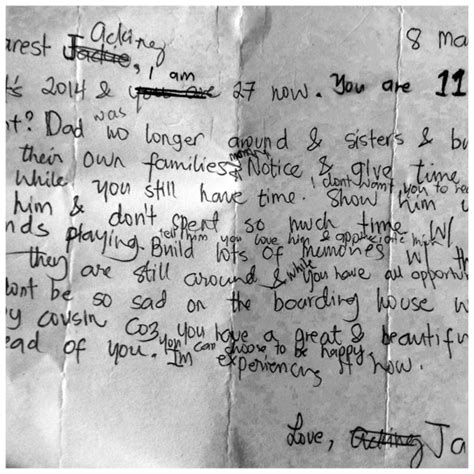 Acking
arest Jackie, 8 Ma
I am
t's 2014 & you are 27 now. You are 11
was
t? Dad no longer around & sisters & bu
their own families. Notice & give time
while you still have time. I don't want you to re
him & don't spent so much time Show him
nds playing. Build lots of memories w/ th
tell him you love him & appreciate him w/
they are still around & while you have all opportun
dont be so sad on the boarding house w
y cousin Coz you have a great & beautifu
ead of you. you can choose to be happy
I'm experiencing it now.
Love, Acking Ja